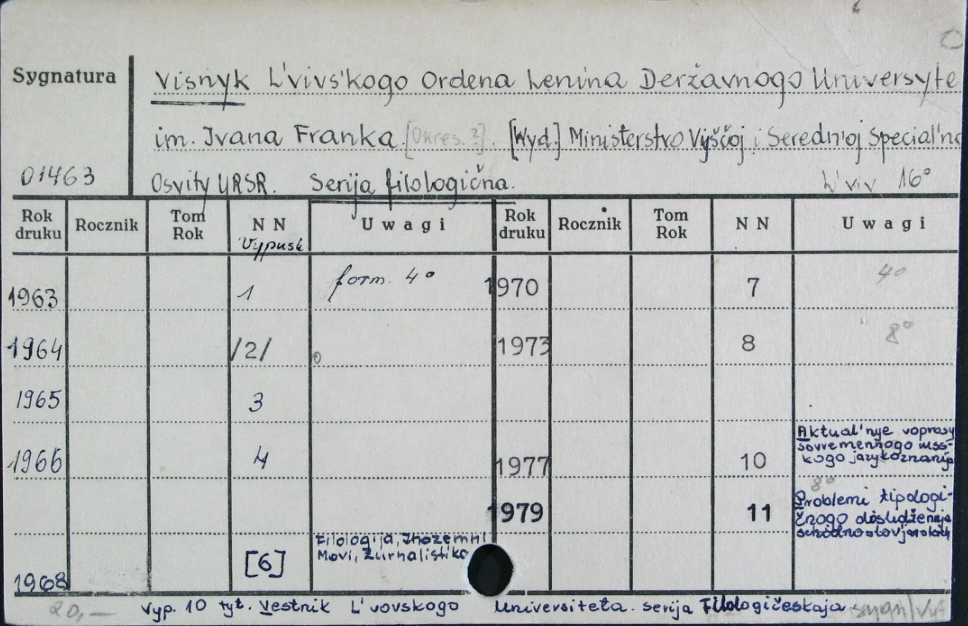 Sygnatura
Visnyk L'vivs'kogo Ordena Lenina Deržavnogo Universyte
im. Ivana Franka. [Okres. ?]. [Wyd.] Ministerstvo Vyščoj i Seredn'oj Special'no
01463
Osvity URSR. Serija filologična.
L'viv 16°
Rok druku Rocznik Tom Rok N N Uwagi Rok druku Rocznik Tom Rok N N Uwagi
Vypusk
1963 1 form. 4° 1970 7 4°
1964 /2/ 1973 8 8°
1965 3
1966 4 1977 10 Aktual'nye voprosy
sovremennogo russ-
kogo jazykoznanija
8°
1979 11 Problemi tipologi-
čnogo doslidžennja
schidnoslovjanskich
1968 [6] Filologija, Inozemni
Movi, Žurnalistika
20,—
Vyp. 10 tyt. Vestnik L'vovskogo Universiteta. serija Filologičeskaja